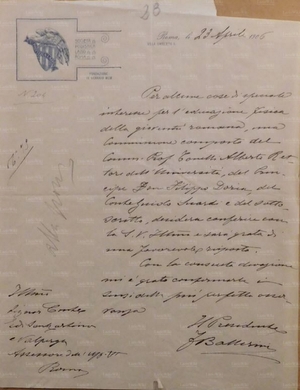 23
Roma, li 23 Aprile 1906
Per alcune cose di speciale
interesse per l'educazione fisica
della gioventù romana, una
Commissione composta del
Comm. Prof. Tonelli Alberto Ret-
tore dell'Università, del Prin-
cipe Don Filippo Doria, del
Conte Guido Suardi e del sotto-
scritto, desidera conferire con la
S. V. Illma e sarà grata di
una favorevole risposta.
Con la consueta devozione
mi è grato confermarle i
sensi della più perfetta osser-
vanza
Il Presidente
F. Ballerini
Illmo
Signor Conte
di
e Valperga
Assessore
Roma